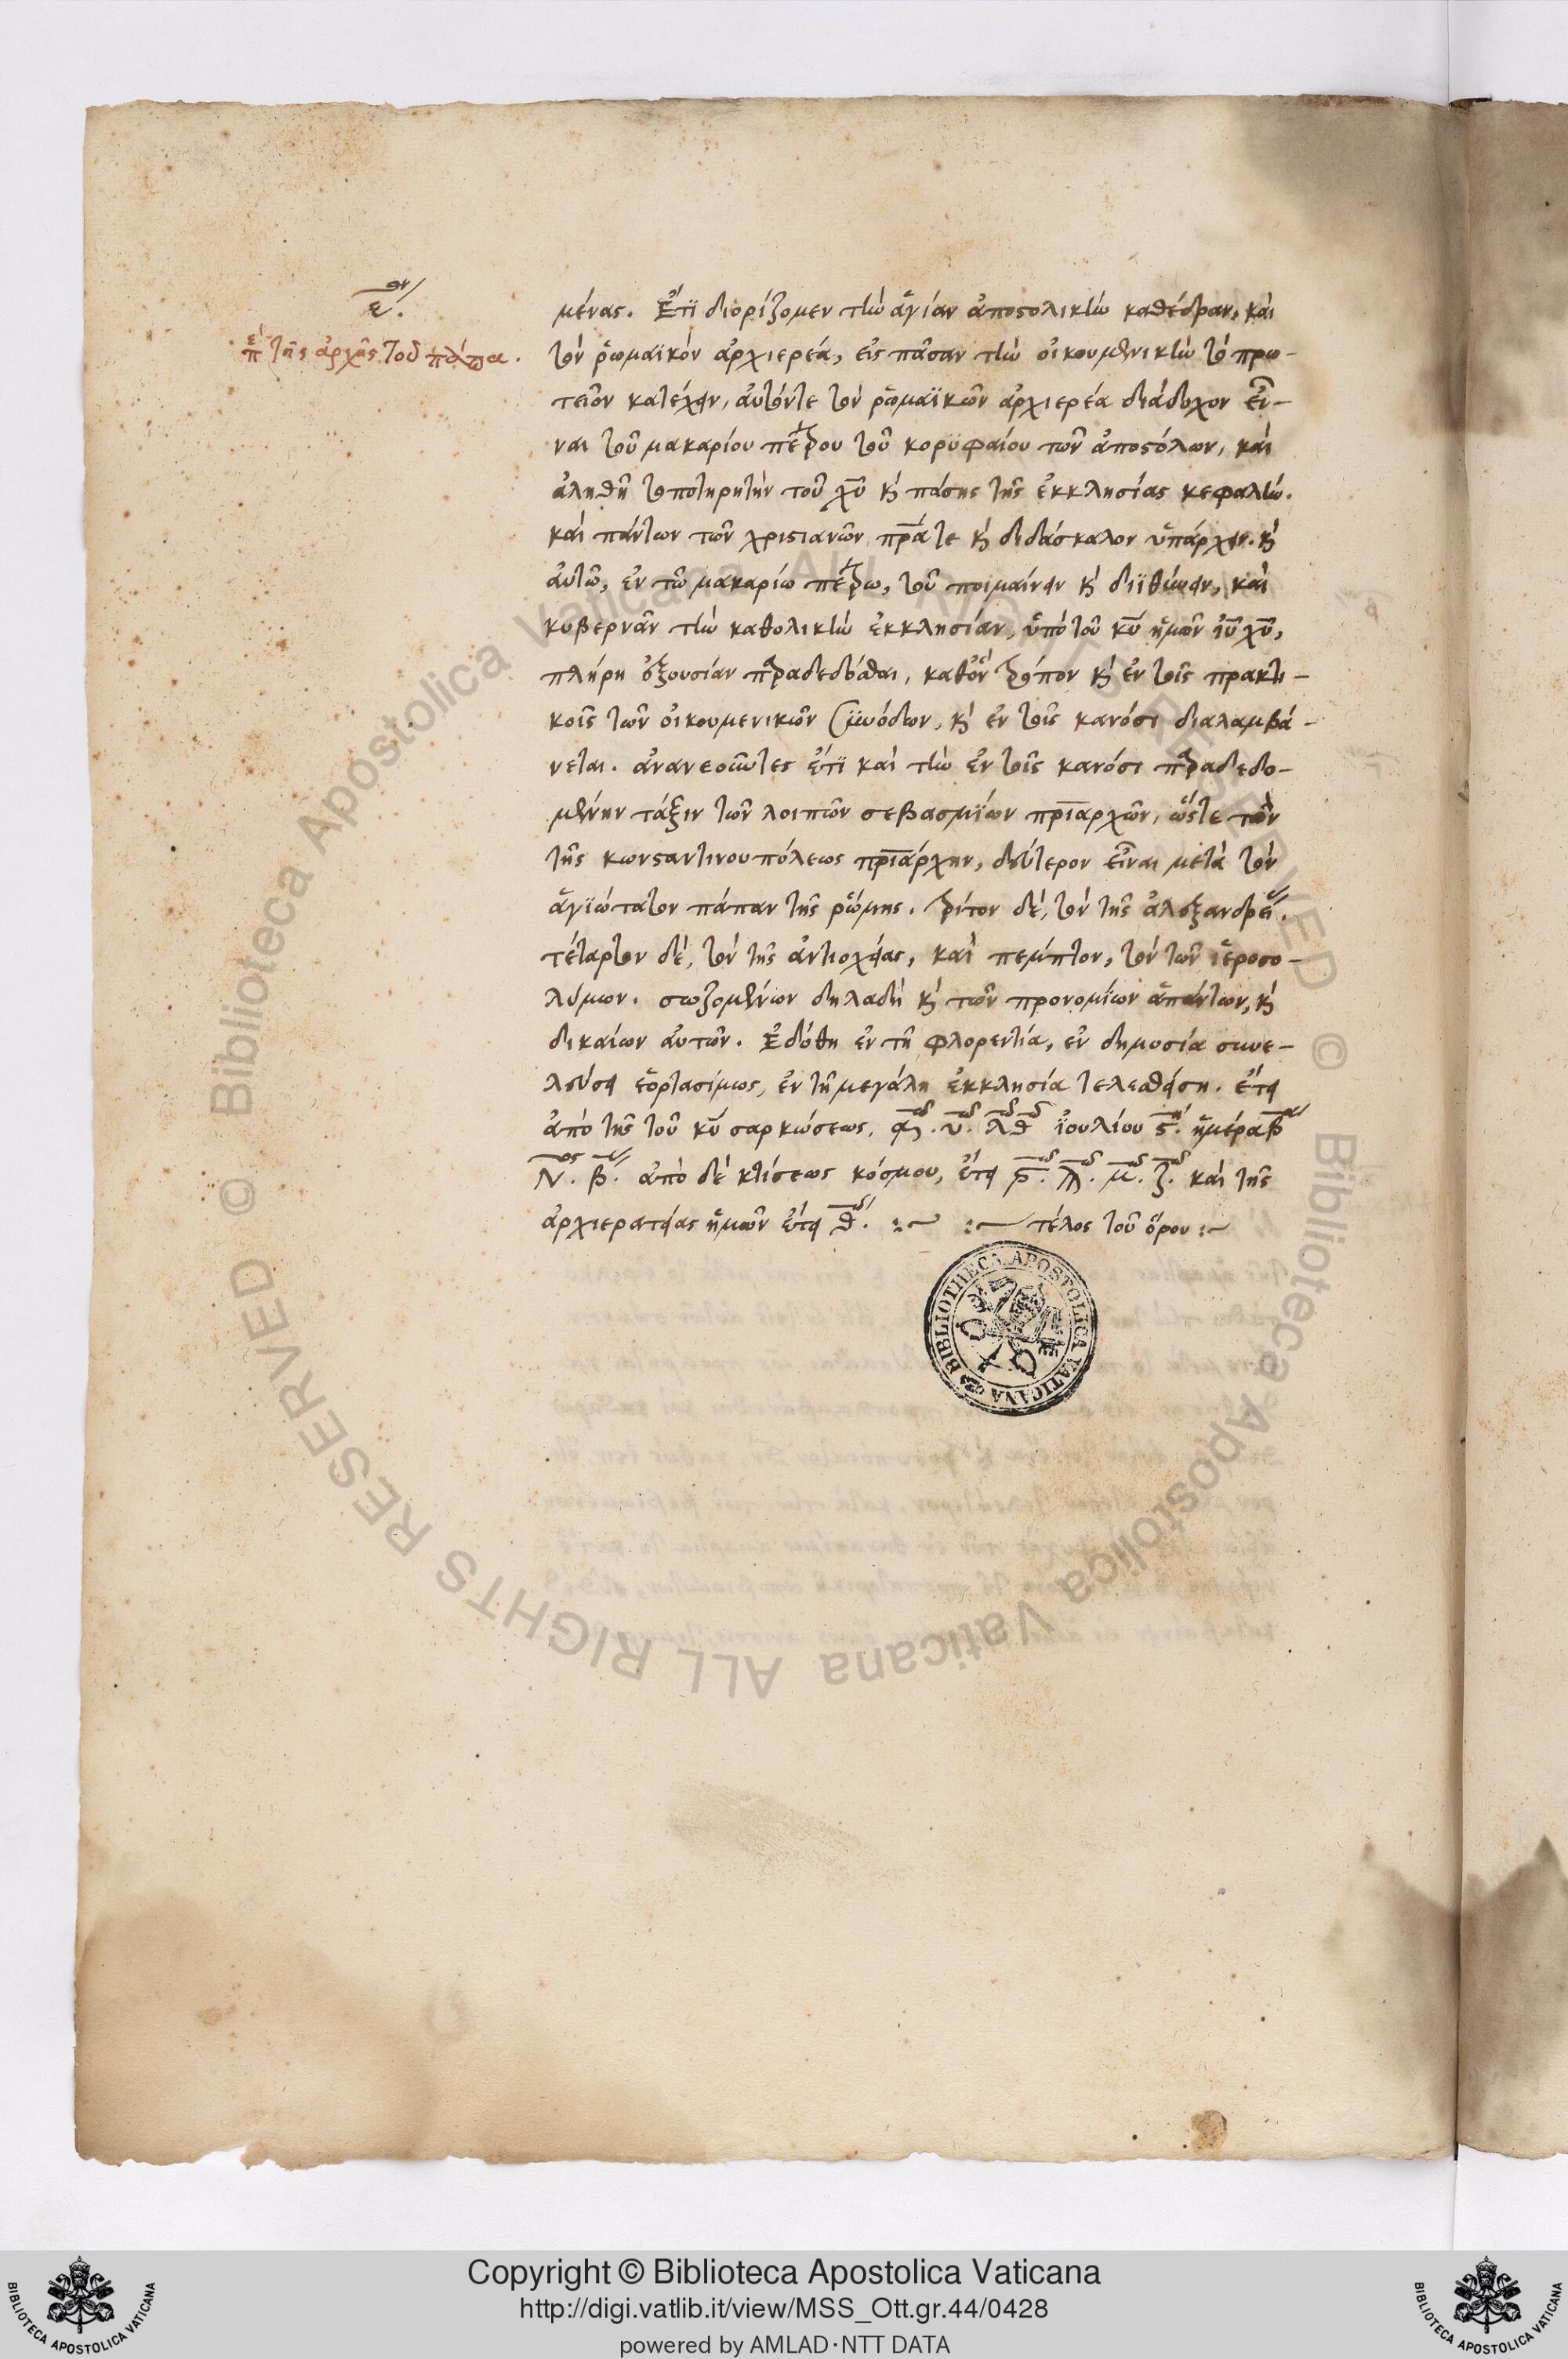 ε΄ον.
ἐπὶ τῆς ἀρχῆς τοῦ πάππα.
μένας. Ἔτϊ διορίζομεν τὴν ἁγίαν ἀποστολικὴν καθέδραν, καὶ
τὸν ῥωμαϊκὸν ἀρχιερέα, εἰς πᾶσαν τὴν οἰκουμενικὴν τὸ πρω-
τεῖον κατέχειν, αὐτόντε τὸν ῥωμαϊκῶν ἀρχιερέα διάδοχον εἶ-
ναι τοῦ μακαρίου πέτρου τοῦ κορϋφαίου τῶν ἀποστόλων, καὶ
ἀληθῆ τοποτηρητὴν τοῦ χῦ κὶ πάσης τῆς ἐκκλησίας κεφαλήν.
καὶ πάντων τῶν χριστιανῶν πρᾶ τε κὶ διδάσκαλον ὑπάρχειν. κὶ
αὐτῶ, ἐν τῶ μακαρίω πέτρω, τοῦ ποιμαίνειν κὶ διϊθύνειν, καὶ
κυβερνᾶν τὴν καθολικὴν ἐκκλησίαν, ὑπὸ τοῦ κῦ ἡμῶν ἰῦ χῦ,
πλήρη ἐξουσίαν παραδεδόσθαι, καθὃν τρόπον κὶ ἐν τοῖς πρακτι-
κοῖς τῶν οἰκουμενικῶν συνόδων, κὶ ἐν τοῖς κανόσι διαλαμβά-
νεται. ἀνανεοῦντες ἔτϊ καὶ τὴν ἐν τοῖς κανόσι παραδεδο-
μένην τάξιν τῶν λοιπῶν σεβασμΐων πριαρχῶν, ὥστε τὸν
τῆς κωνσταντινουπόλεως πριάρχην, δεύτερον εἶναι μετὰ τὸν
ἁγϊώτατον πάπαν τῆς ῥώμης. τρίτον δὲ, τὸν τῆς ἀλεξανδρείας.
τέταρτον δὲ, τὸν τῆς ἀντιοχείας, καὶ πέμπτον, τὸν τῶν ἱεροσο-
λύμων. σωζομένων δηλαδὴ κὶ τῶν προνομίων ἁπάντων, κὶ
δικαίων αὐτῶν. Ἐδόθη ἐν τῆ φλορεντία, ἐν δημοσία συνε-
λεύσει ἑορτασίμως, ἐν τῆ μεγάλη ἐκκλησία τελεσθείση. ἔτει
ἀπὸ τῆς τοῦ κῦ σαρκώσεως, ͵α. υ. λθ ἰουλίου ϛ. ἡμέρα β
Ν. β. ἀπὸ δὲ κτίσεως κόσμου, ἔτει ϛ. ϡ. μ. ζ. καὶ τῆς
ἀρχιερατείας ἡμῶν ἔτει θ. :~ :~ τέλος τοῦ ὅρου :~
BIBLIOTHECA APOSTOLICA VATICANA
© Biblioteca Apostolica Vaticana ALL RIGHTS RESERVED
© Biblioteca Apostolica Vaticana ALL RIGHTS RESERVED
Copyright © Biblioteca Apostolica Vaticana
http://digi.vatlib.it/view/MSS_Ott.gr.44/0428
powered by AMLAD·NTT DATA
BIBLIOTECA APOSTOLICA VATICANA
BIBLIOTECA APOSTOLICA VATICANA